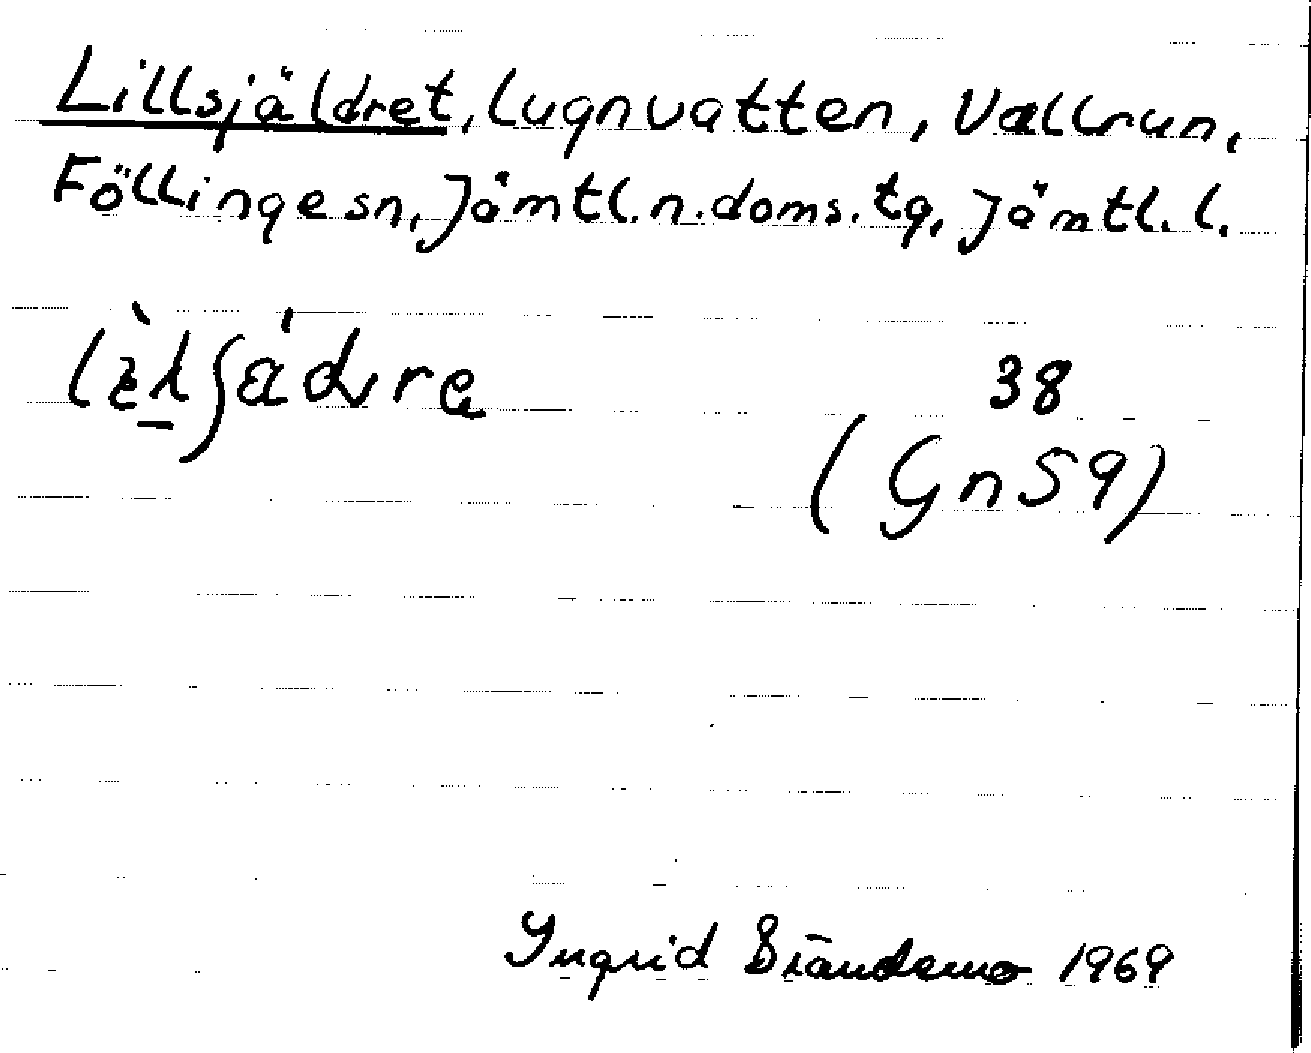 Lillsjäldret, Lugnvatten, Vallrun,
Föllinge sn, Jämtl. n. doms. tg, Jämtl. l.
38
(Gn 59)
Ingrid Brändemo 1969